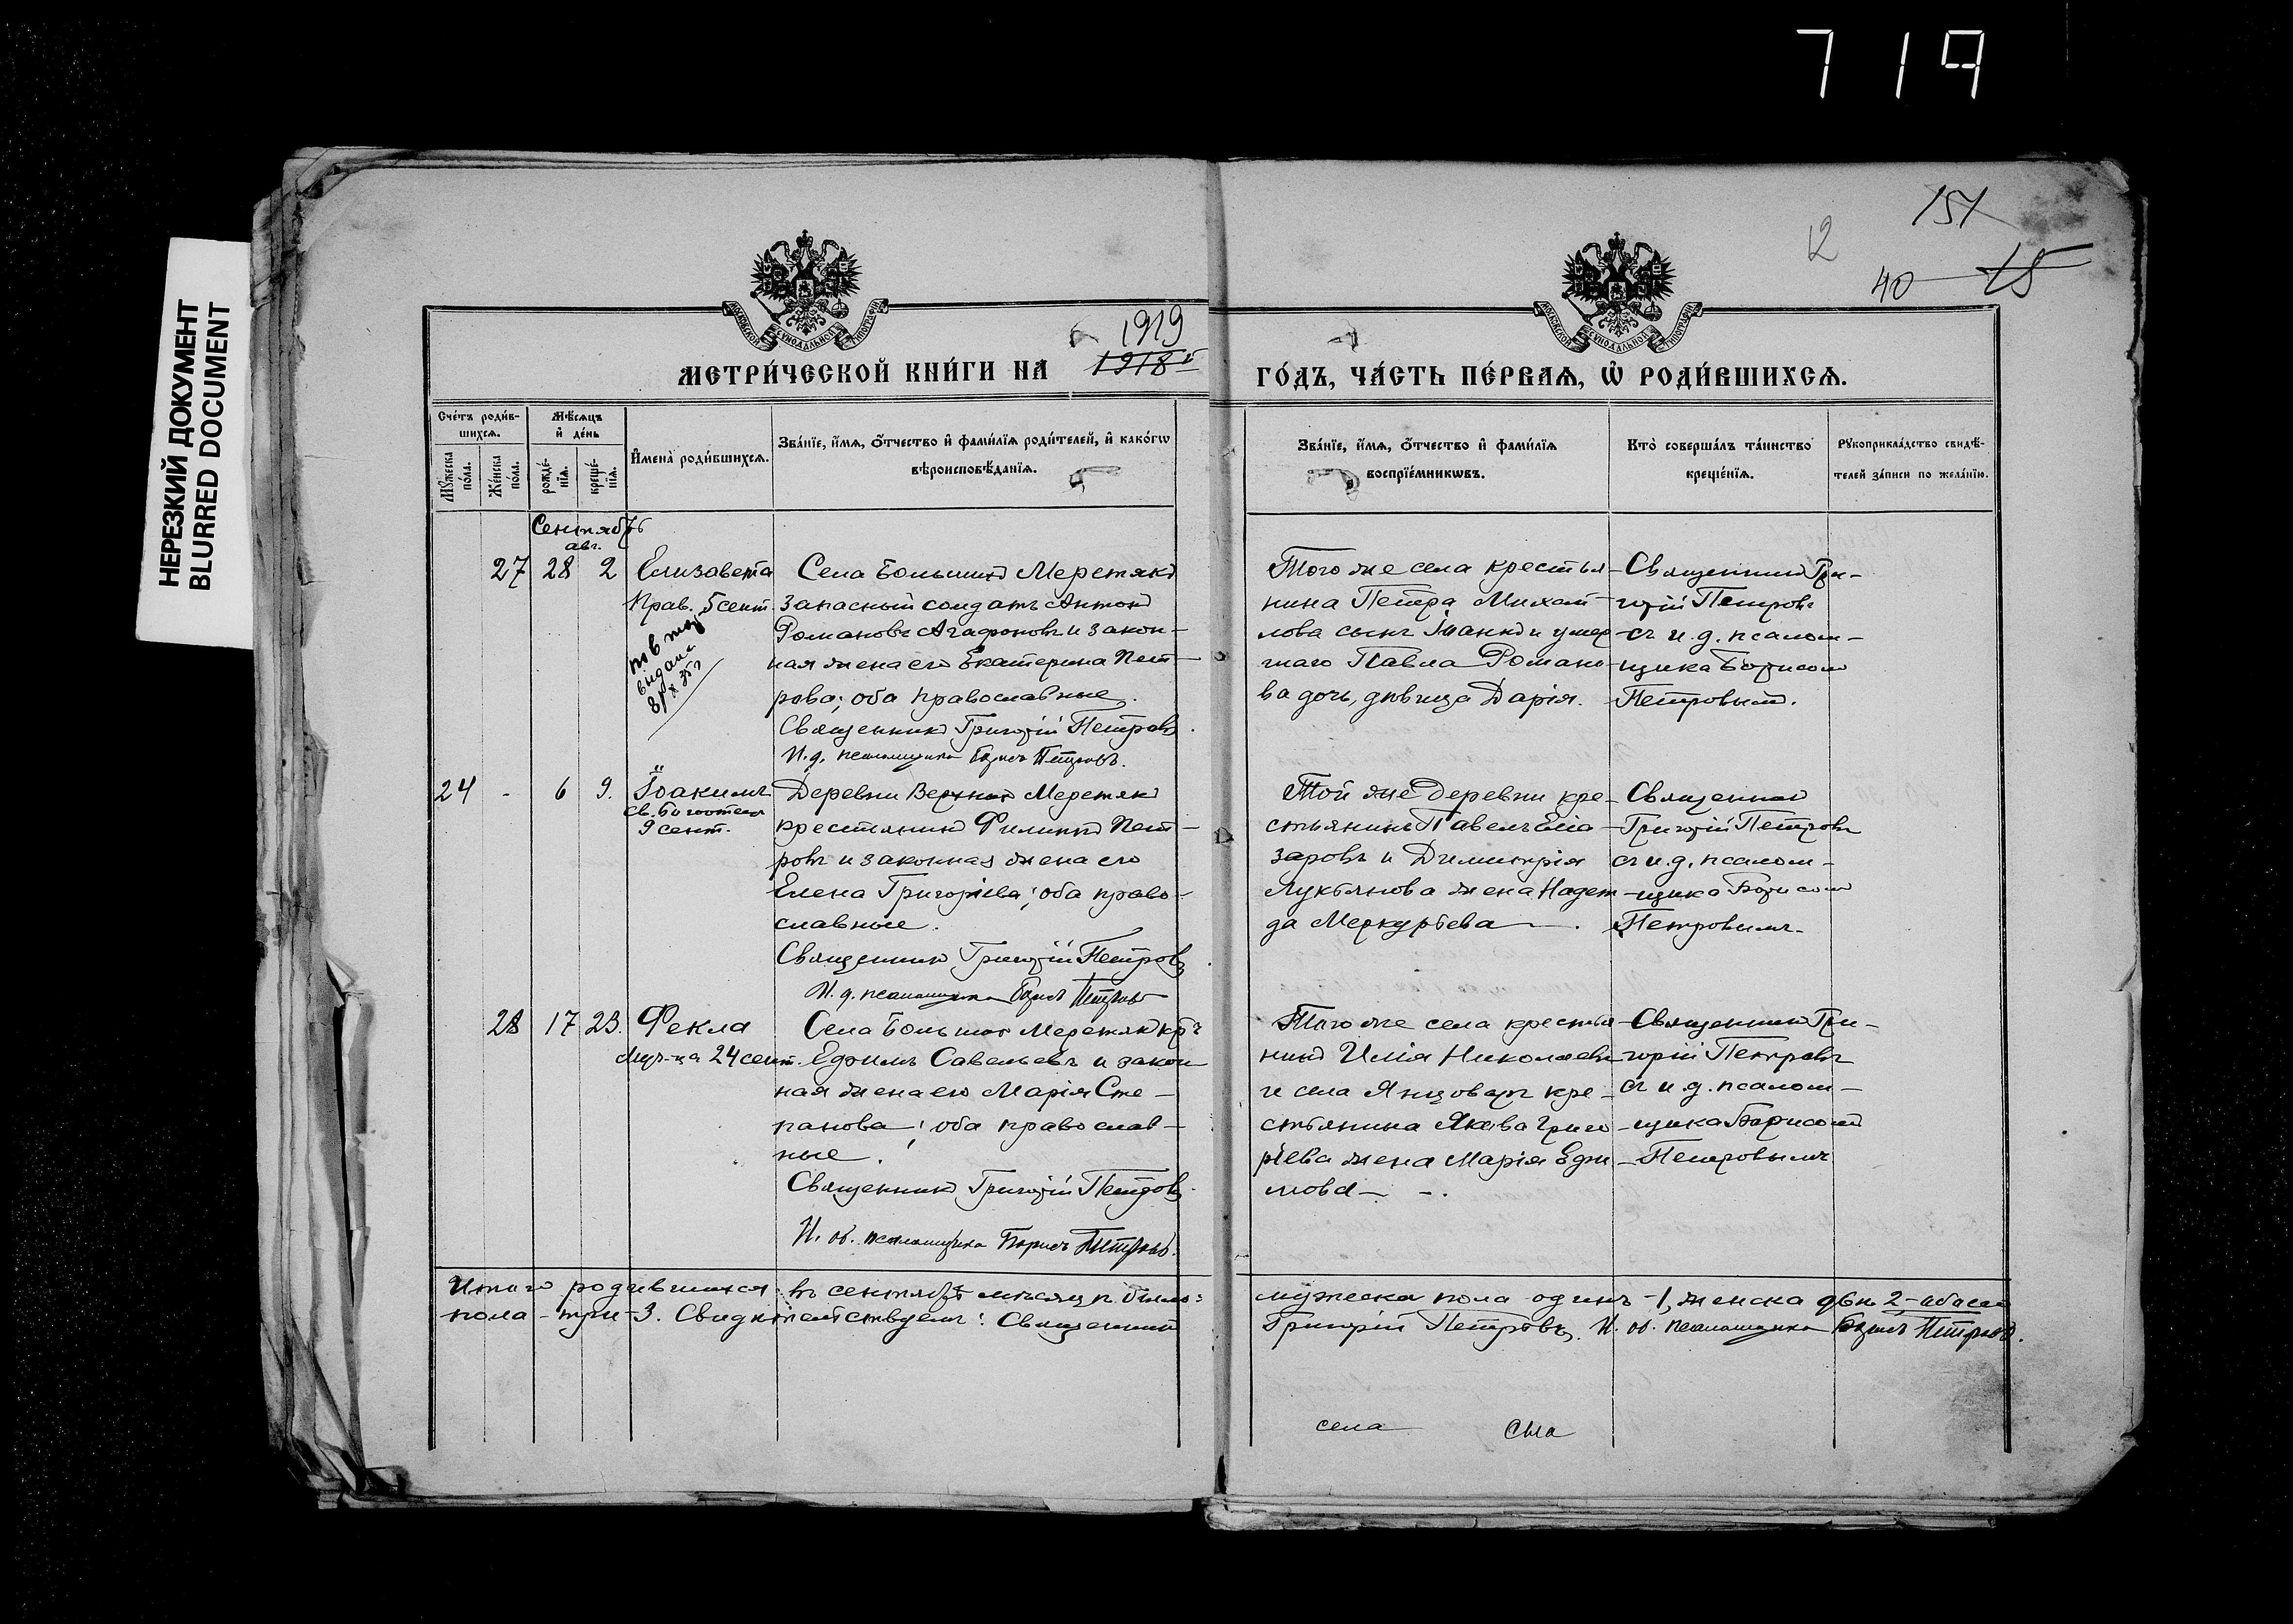 719
НЕРЕЗКИЙ ДОКУМЕНТ
BLURRED DOCUMENT
151
12
40 15
МОСКОВСКОЙ СѴНОДАЛЬНОЙ ТИПОГРАФІИ
МОСКОВСКОЙ СѴНОДАЛЬНОЙ ТИПОГРАФІИ
1919
МЕТРИ́ЧЕСКОЙ КНИ́ГИ НА 1918
ГО́ДЪ, ЧА́СТЬ ПЕ́РВАѦ, Ѽ РОДИ́ВШИХСѦ.
Сче́тъ роди́в-
шихсѧ.
Мꙋ́жеска по́ла.
Же́нска по́ла.
Мѣ́сѧцъ
и҆ де́нь
рожде́-
нїѧ.
креще́-
нїѧ.
И҆мена̀ роди́вшихсѧ.
Зва́нїе, и҆́мѧ, ѻ҆́тчество и҆ фами́лїѧ роди́телей, и҆ како́гѡ
вѣроисповѣ́данїѧ.
Зва́нїе, и҆́мѧ, ѻ҆́тчество и҆ фами́лїѧ
воспрїе́мникѡвъ.
Кто̀ соверша́лъ та́инство
креще́нїѧ.
Рꙋкоприкла́дство свидѣ́-
телей за́писи по жела́нїю.
Сентябрь
авг.
27 28 2 Елизавета
Прав. 5 сент.
выдана
Села Большихъ Меретякъ
запасный солдатъ Антонъ
Романовъ Агафоновъ и закон-
ная жена его Екатерина Пет-
рова; оба православные.
Священникъ Григорій Петровъ
И. д. псаломщика Борисъ Петровъ.
Того же села крестья-
нина Петра Михай-
лова сынъ Іоаннъ и умер-
шаго Павла Романо-
ва дочь, дѣвица Дарія.
Священникъ Гри-
горій Петровъ
съ и. д. псалом-
щика Борисом
Петровым.
24 - 6 9. Іоакимъ
св. Богоотецъ
9 сент.
Деревни Верхнихъ Меретякъ
крестьянинъ Филиппъ Пет-
ровъ и законная жена его
Елена Григоріева; оба право-
славные.
Священникъ Григорій Петровъ
И. д. псаломщика Борисъ Петровъ
Той же деревни кре-
стьянинъ Павелъ Еліа-
заровъ и Димитрія
Лукьянова жена Надеж-
да Меркурьева
Священникъ
Григорій Петровъ
съ и. д. псалом-
щика Борисом
Петровымъ.
28 17 23. Фекла
Муч-ца 24 сент.
Села Больших Меретякъ кр.
Ефимъ Савельевъ и закон-
ная жена его Марія Сте-
панова; оба православ-
ные.
Священникъ Григорій Петровъ
И. об. псаломщика Борисъ Петровъ.
Того же села крестья-
нинъ Илія Николаевъ
и села Янцоваръ кре-
стьянина Якова Григо-
рiева жена Марія Ефи-
мова
Священникъ Гри-
горій Петровъ
съ и. д. псалом-
щика Борисом
Петровымъ
Итого родившихся въ сентябрѣ мѣсяцѣ было: мужеска пола одинъ - 1, женска двѣ 2 - обоего
пола - три - 3. Свидѣтельствуемъ: Священникъ Григорій Петровъ. И. об. псаломщика Борисъ Петровъ.
села